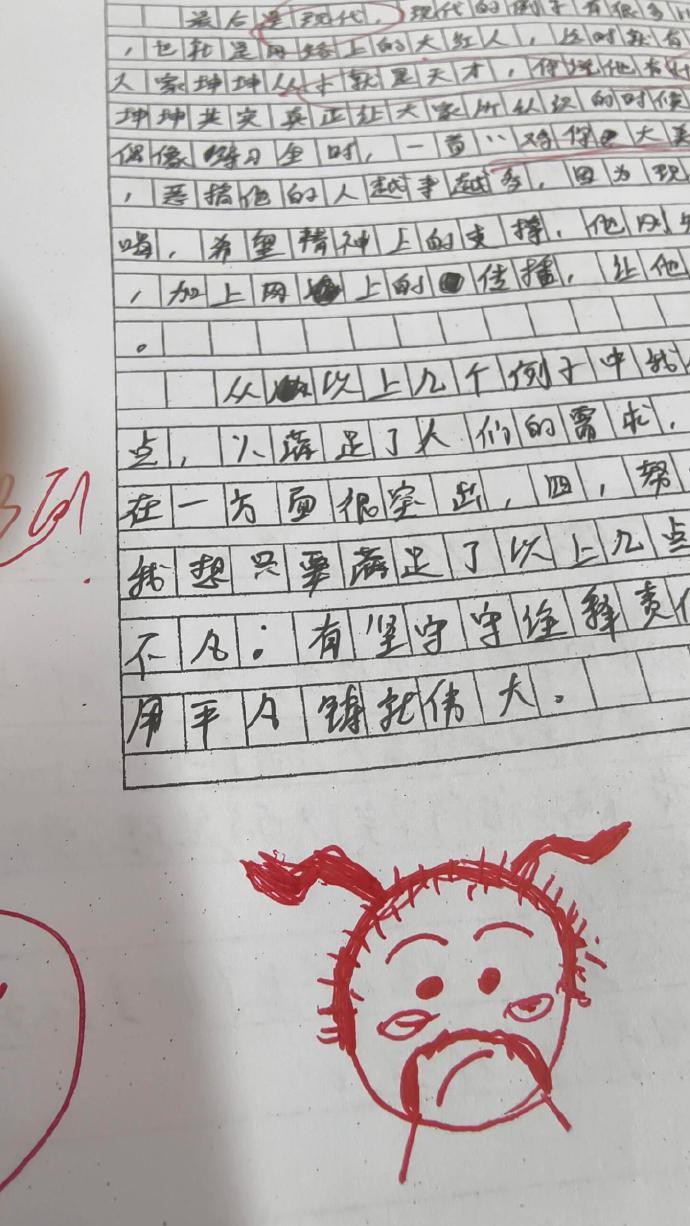 最后是现代，现代的例子有很多
，也就是网络上的大红人，这时就有
人家坤坤从才就是天才，你说他有什
坤坤其实真正让大家所认识的时候
偶像练习生时，一首“鸡你大美
，恶搞他的人越来越多，因为现
嘴，希望精神上的支撑，他
，加上网上的传播，让他
。
从以上几个例子中我
点，火满足了人们的需求，
在一方面很突出，四，努
我想只要满足了以上几点
不凡：有坚守守诠释责任
用平凡铸就伟大。